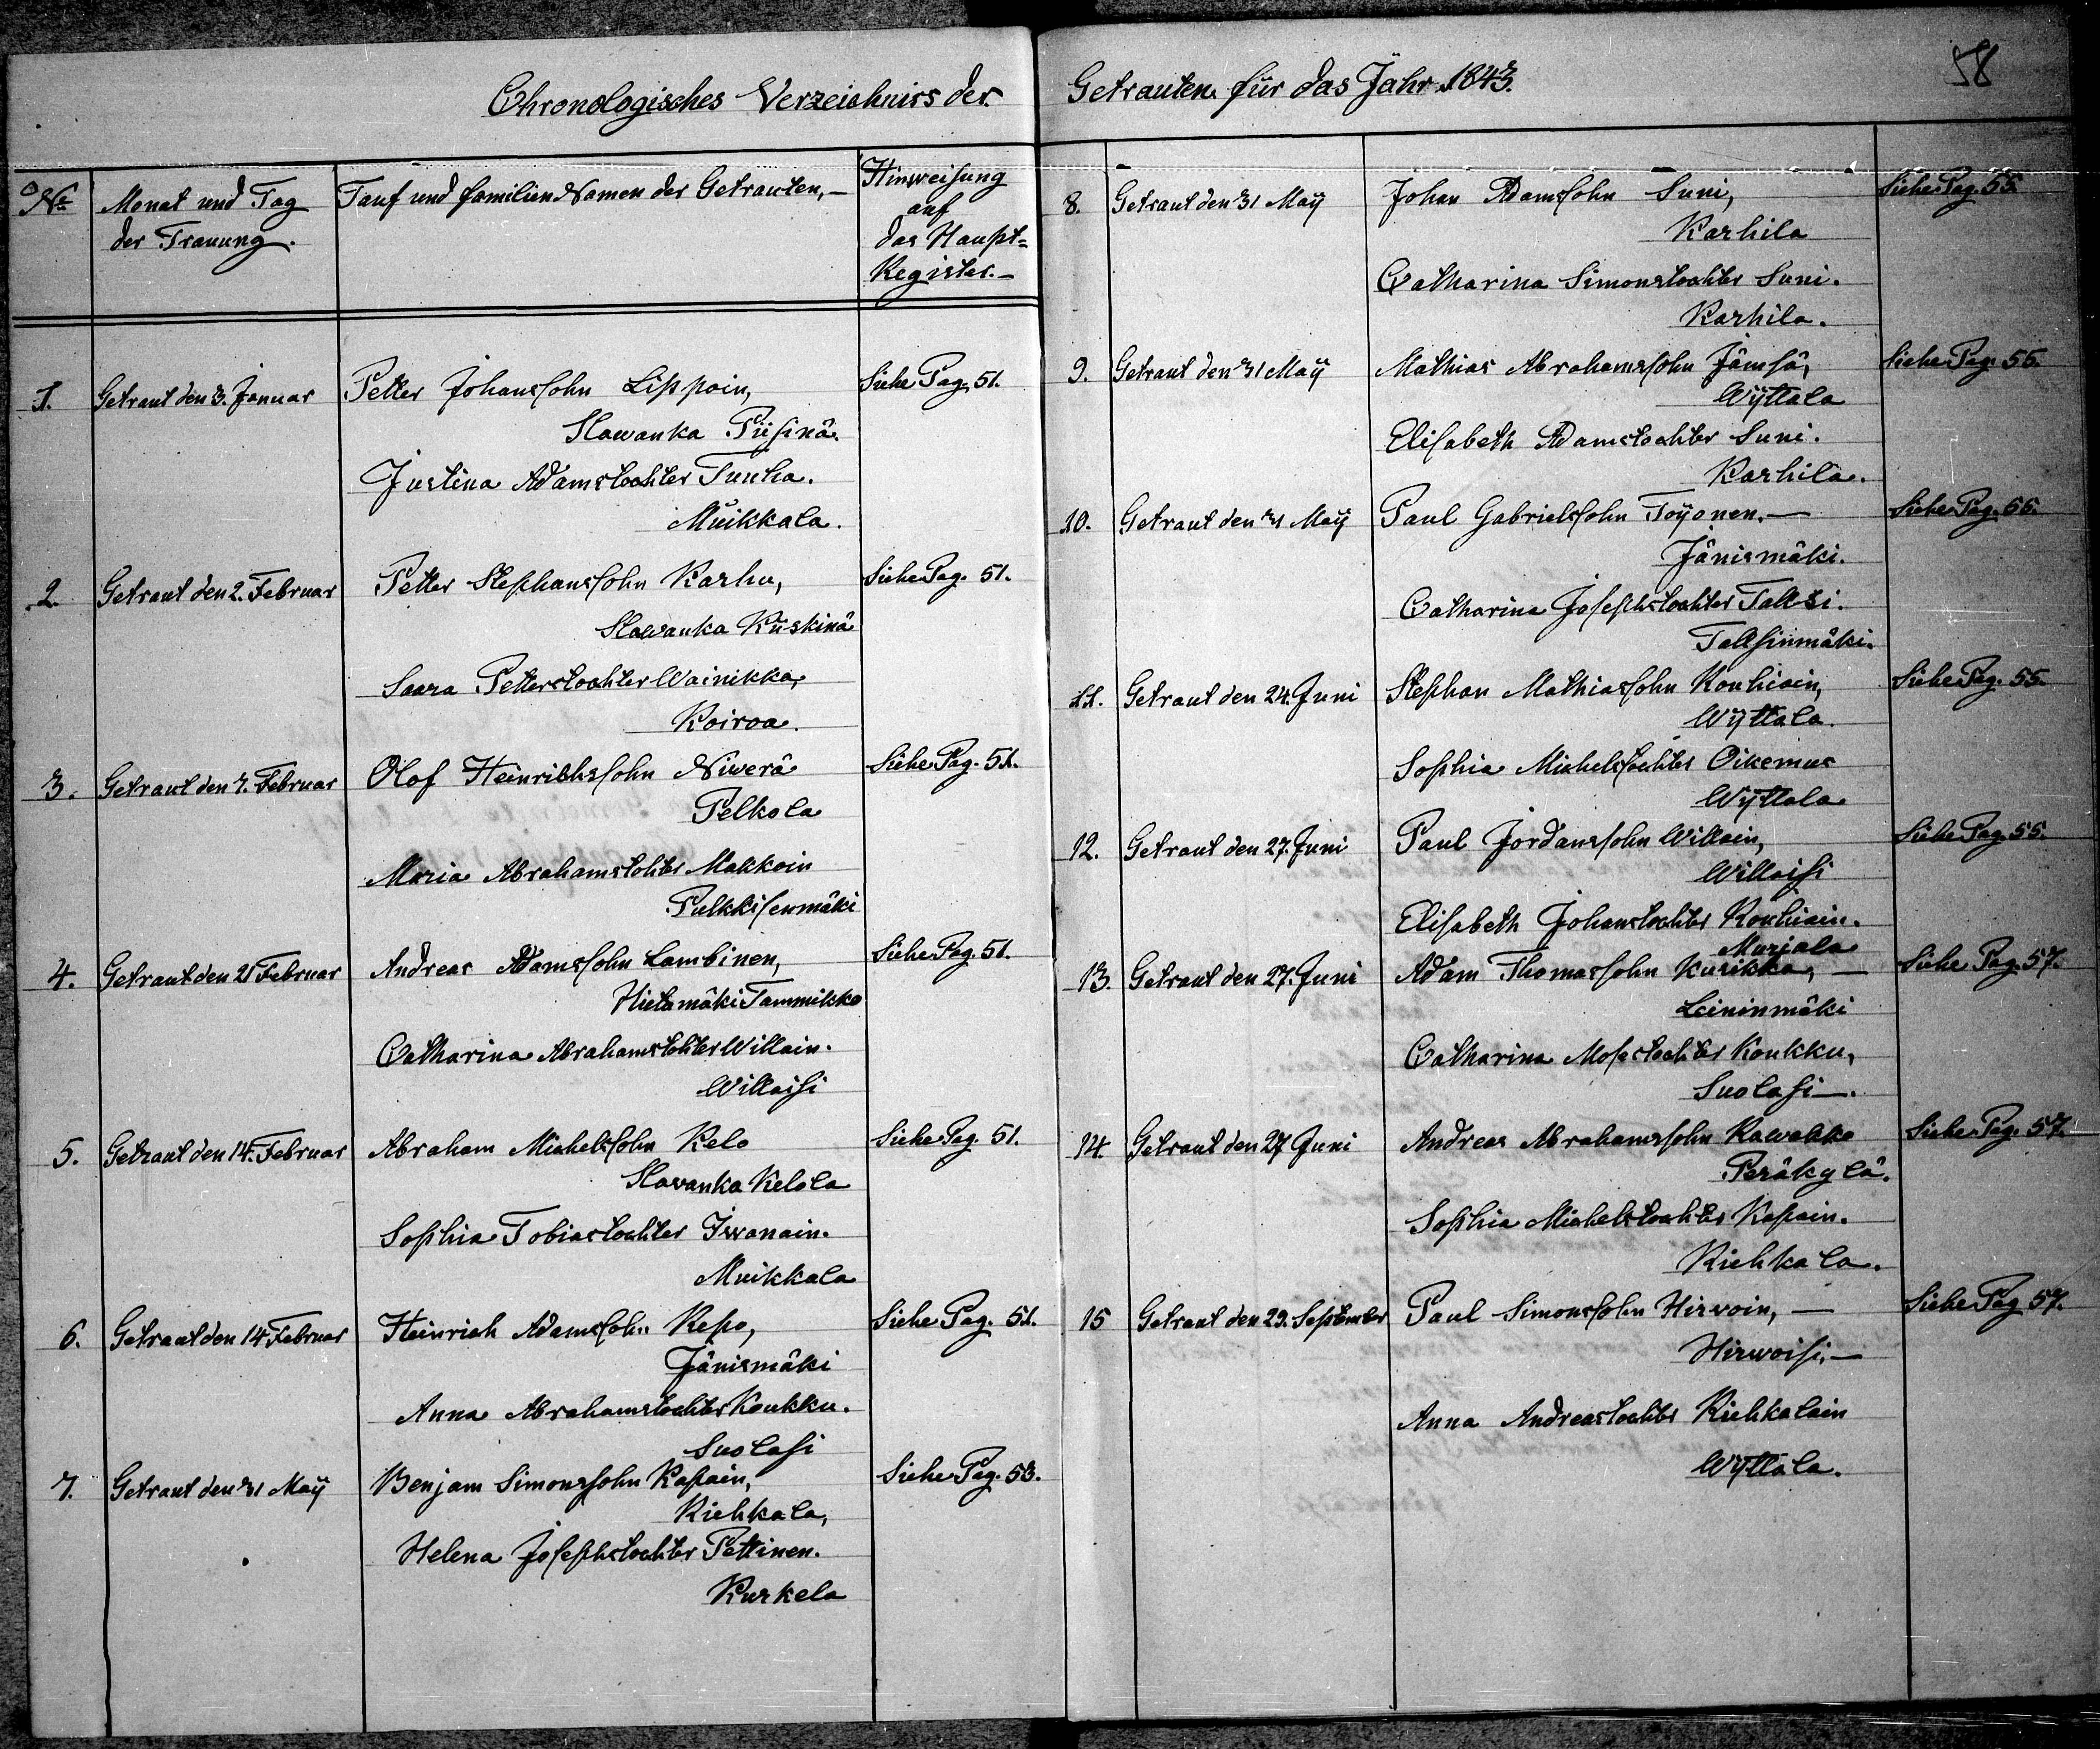 Chronologisches Verzeichniss der
No
Monat und Tag
der Trauung.
Tauf und familien Namen der Getrauten,—
Hinweisung
auf
das Haupt=
Register.—
1. Getraut den 3. Januar Petter Johanssohn Lippoin, Siehe Pag. 51.
Slawanka Püsinä.
Justina Adamstochter Tunha.
Muikkala.
2. Getraut den 2. Februar Petter Stephanssohn Karhu, Siehe Pag. 51.
Slawanka Kuskinä
Saara Petterstochter Wainikka,
Koiroa.
3. Getraut den 7. Februar Olof Heinrichssohn Niwerä Siehe Pag. 51.
Pelkola
Maria Abrahamstochter Makkoin
Pulkkisenmäki
4. Getraut den 21 Februar Andreas Adamssohn Lambinen, Siehe Pag. 51.
Hietamäki Tammikko
Catharina Abrahamstochter Willain.
Willaisi
5. Getraut den 14. Februar Abraham Michelssohn Kelo Siehe Pag. 51.
Slavanka Kelola
Sophia Tobiastochter Iwanain.
Muikkala
6. Getraut den 14 Februar Heinrich Adamssohn Repo, Siehe Pag. 51.
Jänismäki
Anna Abrahamstochter Koukku.
Suolasi
7. Getraut den 31 Maÿ Benjam Simonssohn Kapain, Siehe Pag. 53.
Riehkala,
Helena Josephstochter Pettinen.
Kurkela
58
Getrauten für das Jahr 1843.
8. Getraut den 31 Maÿ Johan Adamssohn Suni, Siehe Pag. 55.
Karhila
Catharina Simonstochter Suni.
Karhila.
9. Getraut den 31 Maÿ Mathias Abrahamssohn Jämsä, Siehe Pag. 55.
Wÿttala
Elisabeth Adamstochter Suni.
Karhila.
10. Getraut den 31 Maÿ Paul Gabrielssohn Toÿonen.— Siehe Pag. 55.
Jänismäki.
Catharina Josephstochter Talsi.
Talsinmäki.
11. Getraut den 24. Juni Stephan Mathiassohn Kouhiain, Siehe Pag. 55.
Wÿttala.
Sophia Michelstochter Oikemus
Wÿttala.
12. Getraut den 27. Juni Paul Jordanssohn Willain, Siehe Pag. 55.
Willaisi
Elisabeth Johanstochter Kouhiain.
Murjala
13. Getraut den 27. Juni Adam Thomassohn Kurikka,— Siehe Pag. 57.
Leininmäki
Catharina Mosestochter Koukku,
Suolasi—.
14. Getraut den 27 Juni Andreas Abrahamssohn Kawakko Siehe Pag. 57.
Peräkylä.
Sophia Michelstochter Kapain.
Riehkala.
15 Getraut den 29. September Paul Simonssohn Hirvoin,— Siehe Pag 57.
Hirwoisi.—
Anna Andreastochter Riehkalain
Wÿttala.